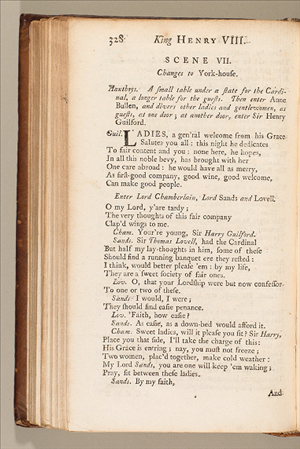 328 King HENRY VIII.
SCENE VII.
Changes to York-house.
Hautboys. A small table under a state for the Cardi-
nal, a longer table for the guests. Then enter Anne
Bullen, and divers other ladies and gentlewomen, as
guests, at one door; at another door, enter Sir Henry
Guilford.
Guil. LADIES, a gen'ral welcome from his Grace
Salutes you all: this night he dedicates
To fair content and you: none here, he hopes,
In all this noble bevy, has brought with her
One care abroad: he would have all as merry,
As first-good company, good wine, good welcome,
Can make good people.
Enter Lord Chamberlain, Lord Sands and Lovell.
O my Lord, y'are tardy;
The very thoughts of this fair company
Clap'd wings to me.
Cham. Your're young, Sir Harry Guilford.
Sands. Sir Thomas Lovell, had the Cardinal
But half my lay-thoughts in him, some of these
Should find a running banquet ere they rested:
I think, would better please 'em: by my life,
They are a sweet society of fair ones.
Lov. O, that your Lordship were but now confessor
To one or two of these.
Sands. I would, I were;
They should find easie penance.
Lov. 'Faith, how easie?
Sands. As easie, as a down-bed would afford it.
Cham. Sweet ladies, will it please you sit? Sir Harry,
Place you that side, I'll take the charge of this:
His Grace is entring; nay, you must not freeze;
Two women, plac'd together, make cold weather:
My Lord Sands, you are one will keep 'em waking;
Pray, sit between these ladies.
Sands. By my faith,
And